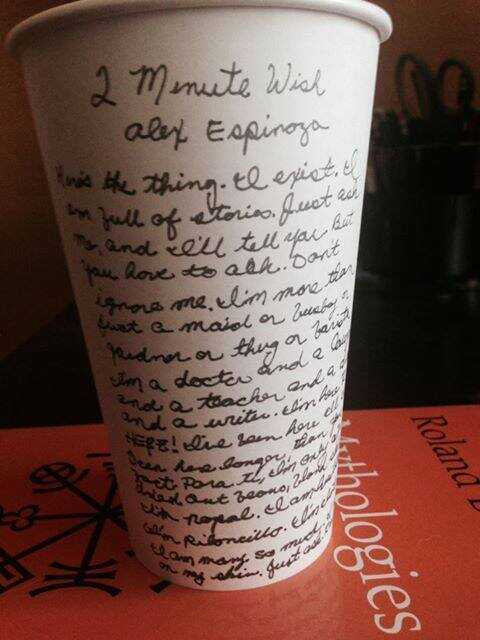 2 Minute Wish
Alex Espinoza
Here's the thing. I exist. I
am full of stories. Just ask
me, and I'll tell you. But
you have to ask. Don't
ignore me. I'm more than
just a maid or busboy or
or thug or
I'm a doctor and a
and a teacher and a
and a writer. I'm here
HERE! I've been here
been here longer than
I'm only
dried out
I'm nopal. I am
I'm Piloncillo. I'm
I am many. So much
on my skin. Just ask
Mythologies
Roland